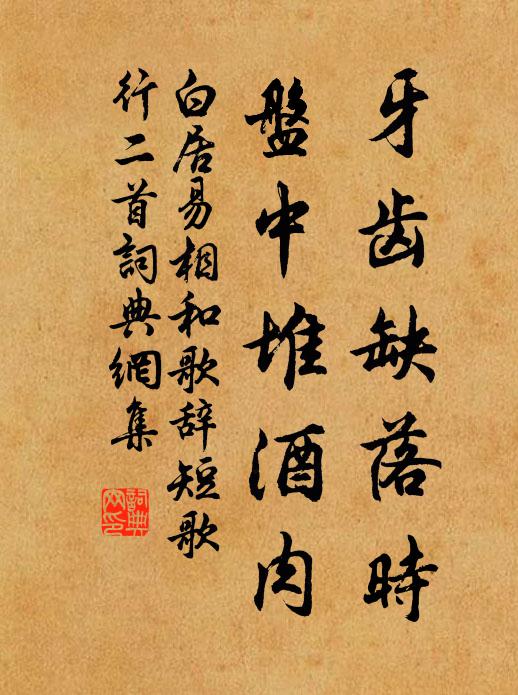 牙齿缺落時
盤中堆酒肉
白居易相和歌辞短歌
行二首詞典網集
詞典
网印